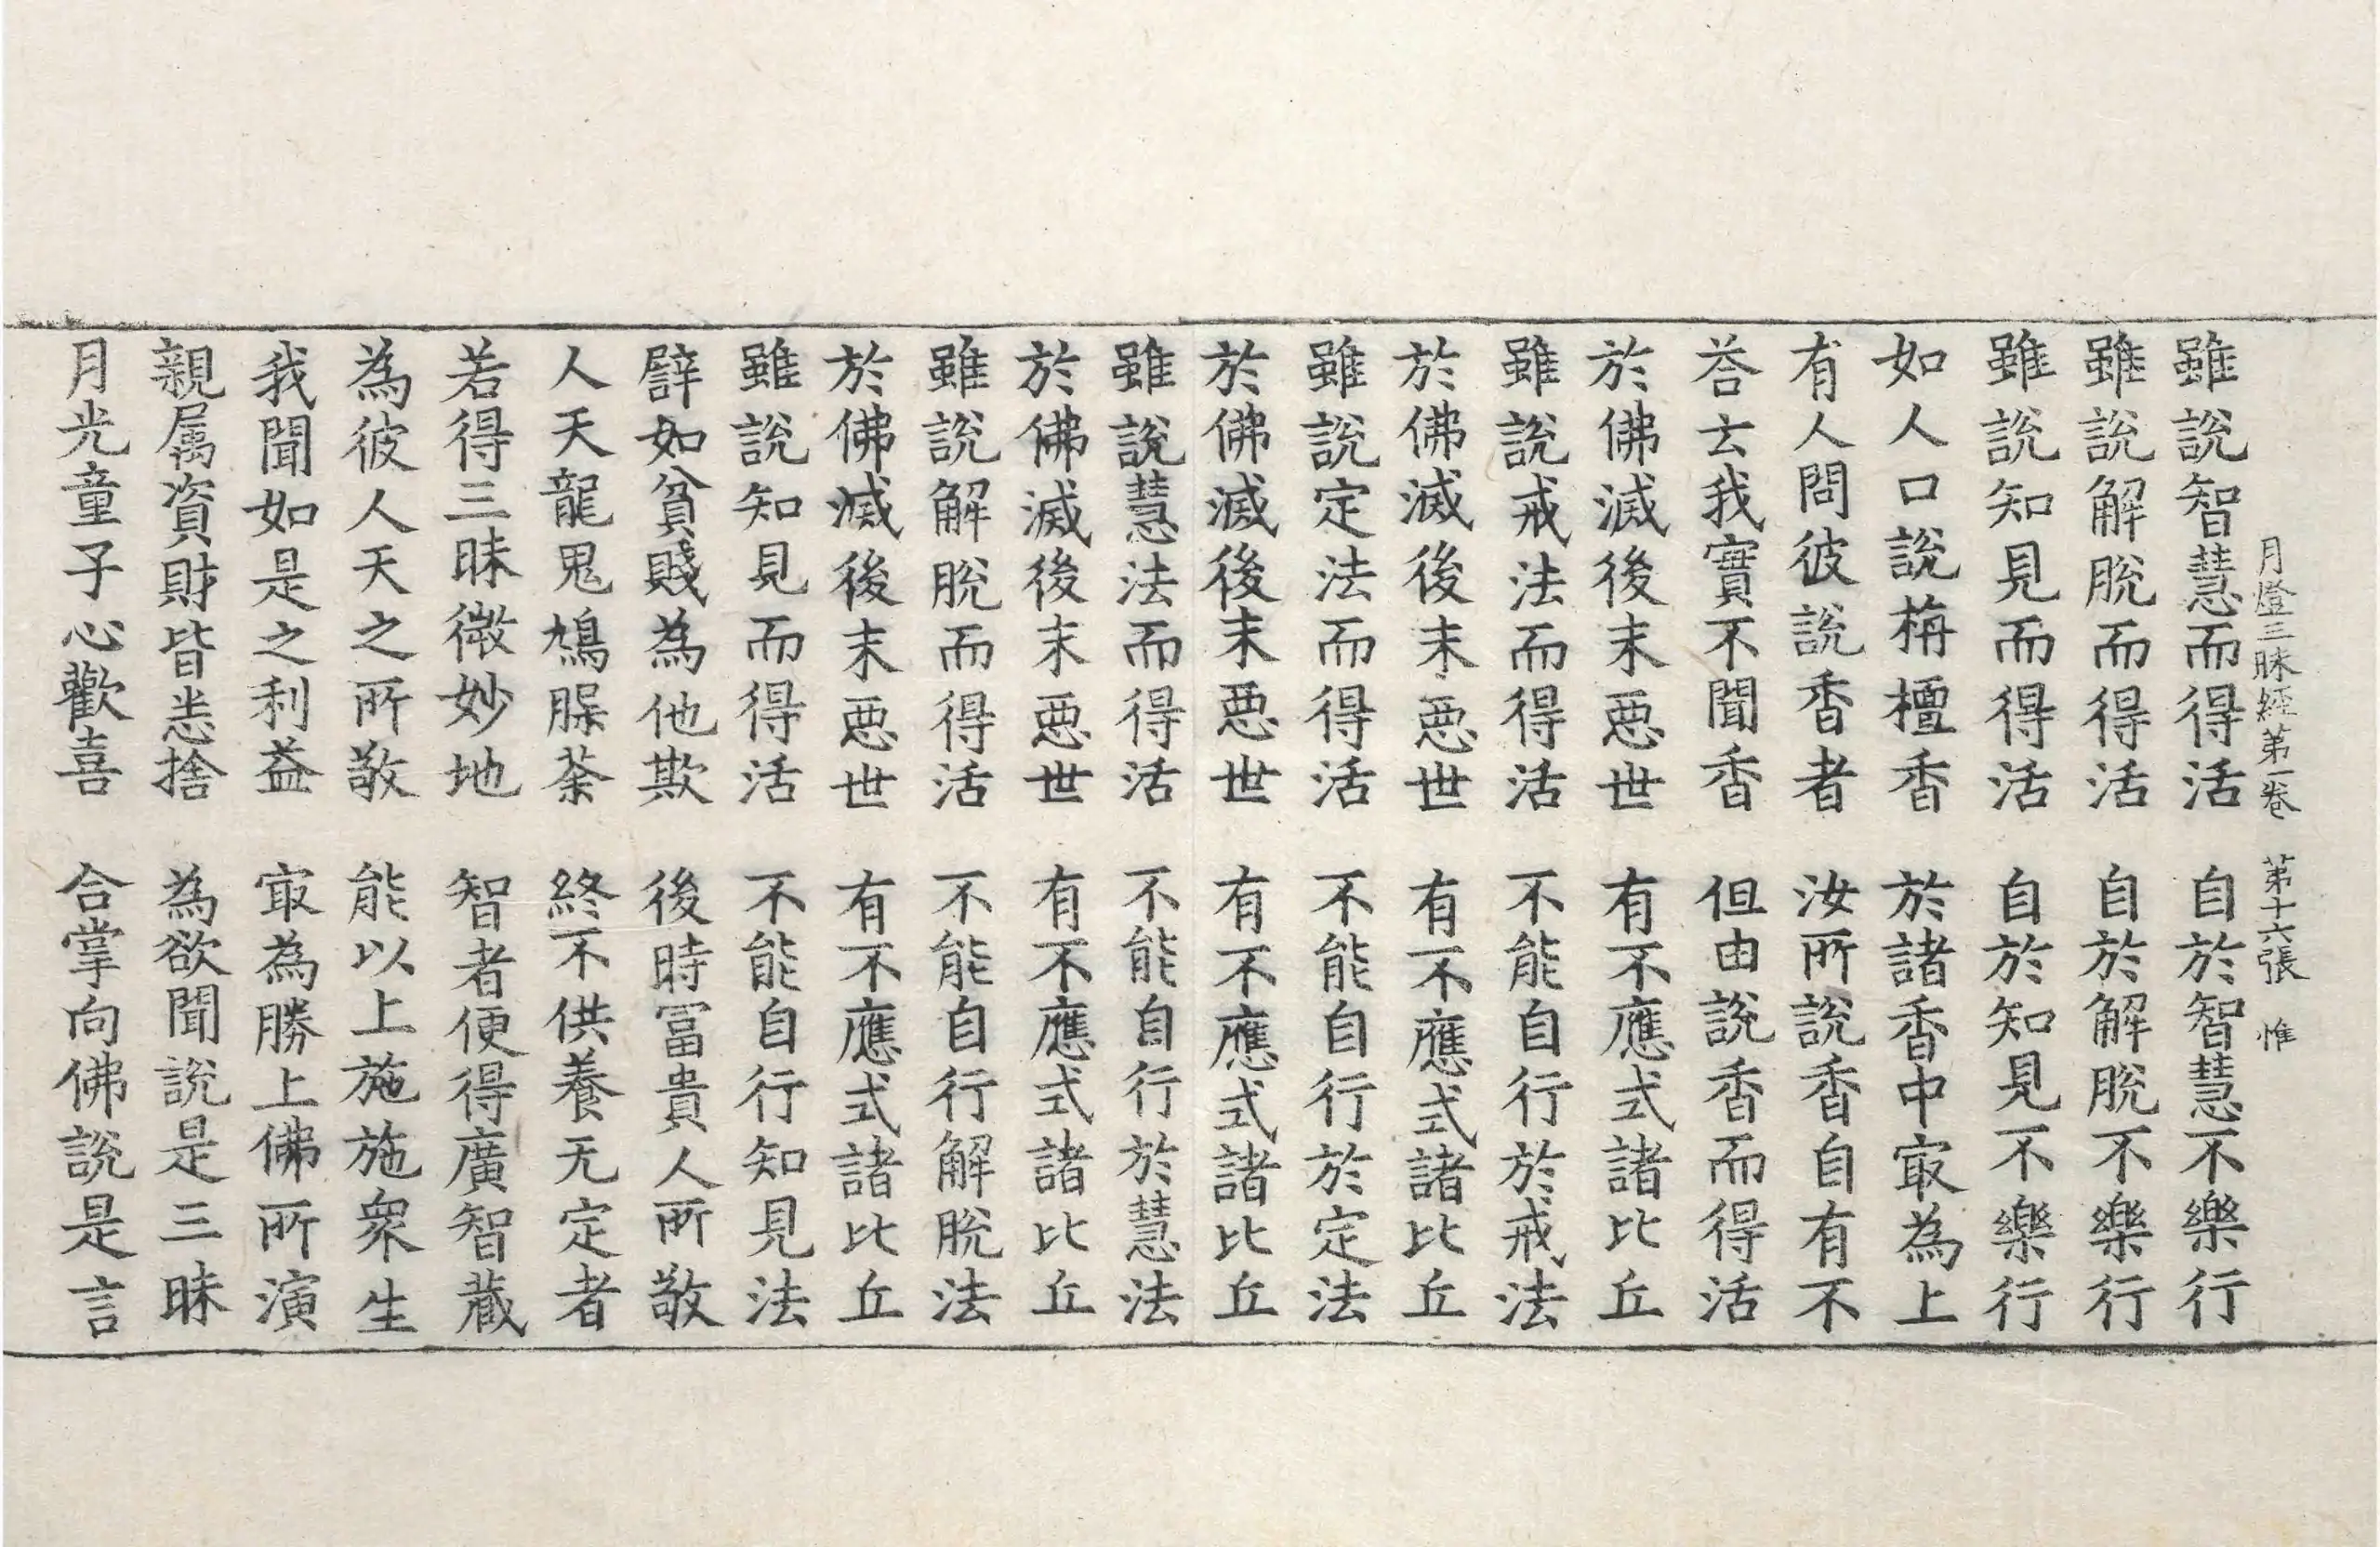 月燈三昧經第一卷　第十六張　惟
雖說智慧而得活　自於智慧不樂行
雖說解脫而得活　自於解脫不樂行
雖說知見而得活　自於知見不樂行
如人口說栴檀香　於諸香中㝡為上
有人問彼說香者　汝所說香自有不
荅言我實不聞香　但由說香而得活
於佛滅後末惡世　有不應式諸比丘
雖說戒法而得活　不能自行於戒法
於佛滅後末惡世　有不應式諸比丘
雖說定法而得活　不能自行於定法
於佛滅後末惡世　有不應式諸比丘
雖說慧法而得活　不能自行於慧法
於佛滅後末惡世　有不應式諸比丘
雖說解脫而得活　不能自行解脫法
於佛滅後末惡世　有不應式諸比丘
雖說知見而得活　不能自行知見法
譬如貧賤為他欺　後時冨貴人所敬
人天龍鬼鳩脲荼　終不供養无定者
若得三昧微妙地　智者便得廣智藏
為彼人天之所敬　能以上施施衆生
我聞如是之利益　㝡為勝上佛所演
親属資財皆悉捨　為欲聞說是三昧
月光童子心歡喜　合掌向佛說是言